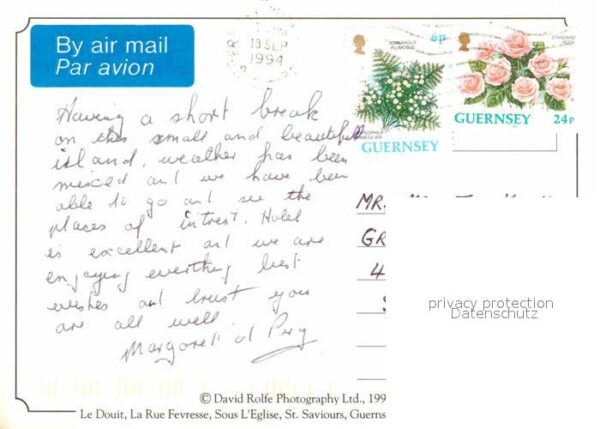 By air mail
Par avion
13 SEP
1994
ASPARAGUS
PLUMOSUS
6p
GUERNSEY
STANDARD
ROSE
GUERNSEY 24p
Having a short break
on this small and beautiful
island, weather has been
mixced and we have been
able to go and see the
places of intrest. Hotel
is excellent and we are
engoying everthing best
wishes and trust you
are all well
Margaret
MR.
GR
4
privacy protection
Datenschutz
© David Rolfe Photography Ltd., 199
Le Douit, La Rue Fevresse, Sous L'Eglise, St. Saviours, Guerns